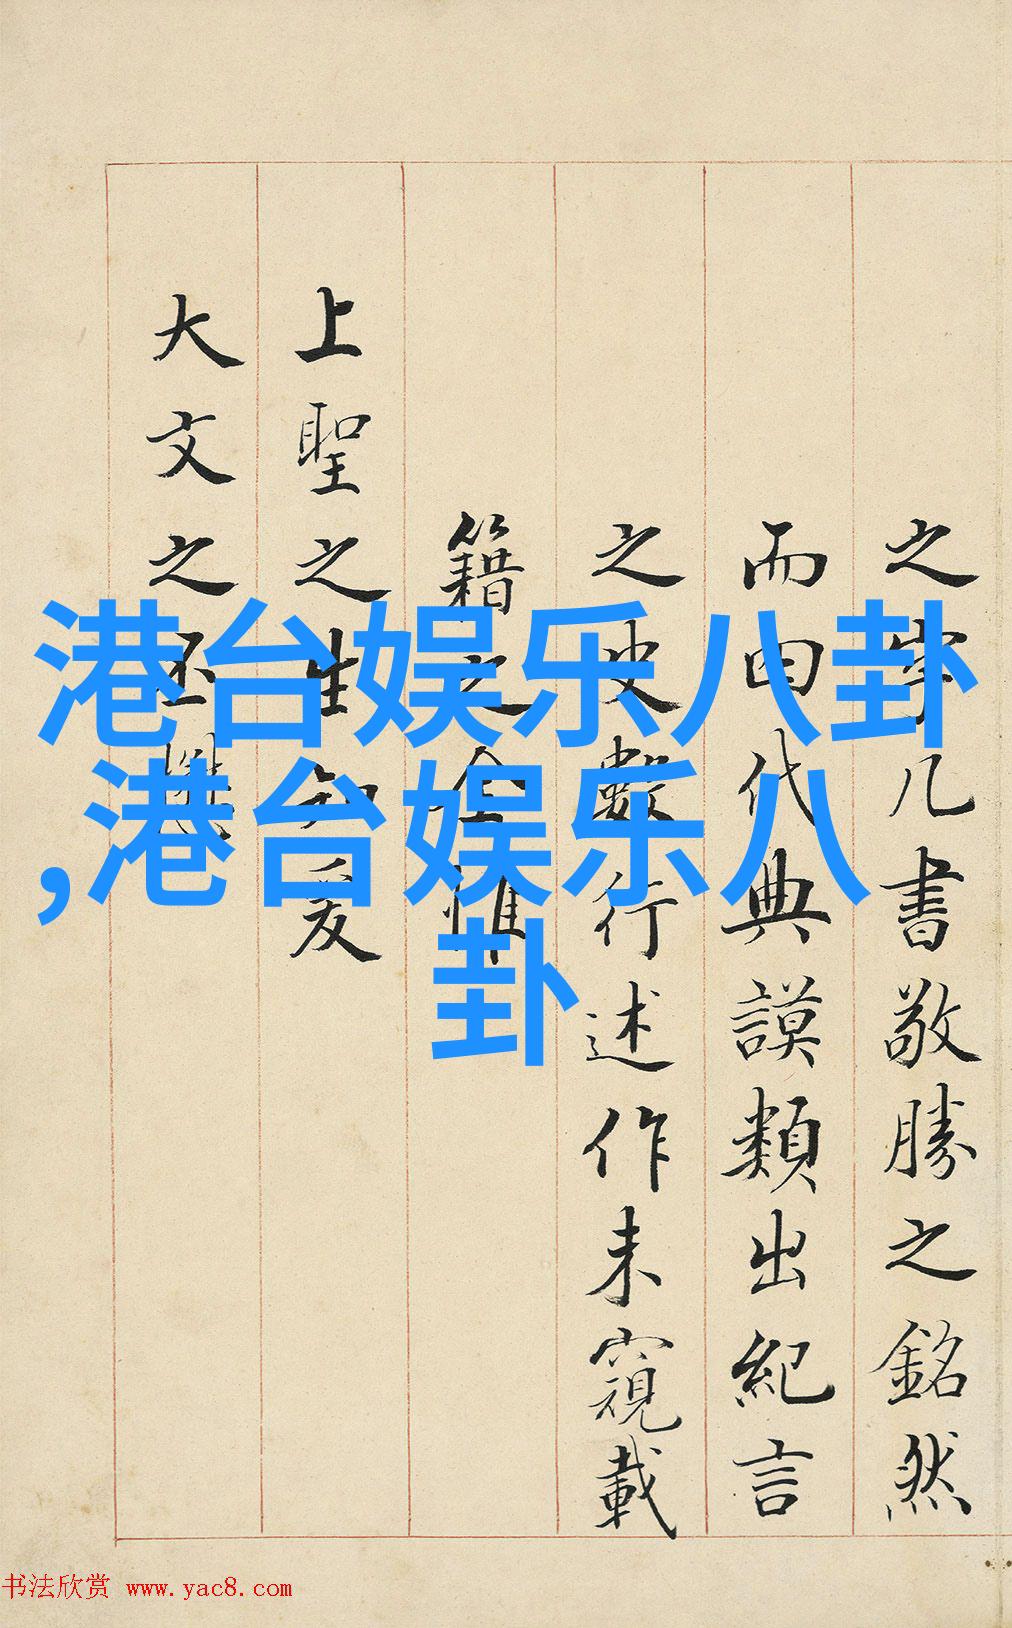 之宰几書敬勝之銘然
而曰代典謨類出紀言
之史數行述作未窺載
籍之全惟
上聖之生知爰
大文之丕
港台娱乐八卦
,港台娱乐八
卦
书法欣赏 www.yac8.com